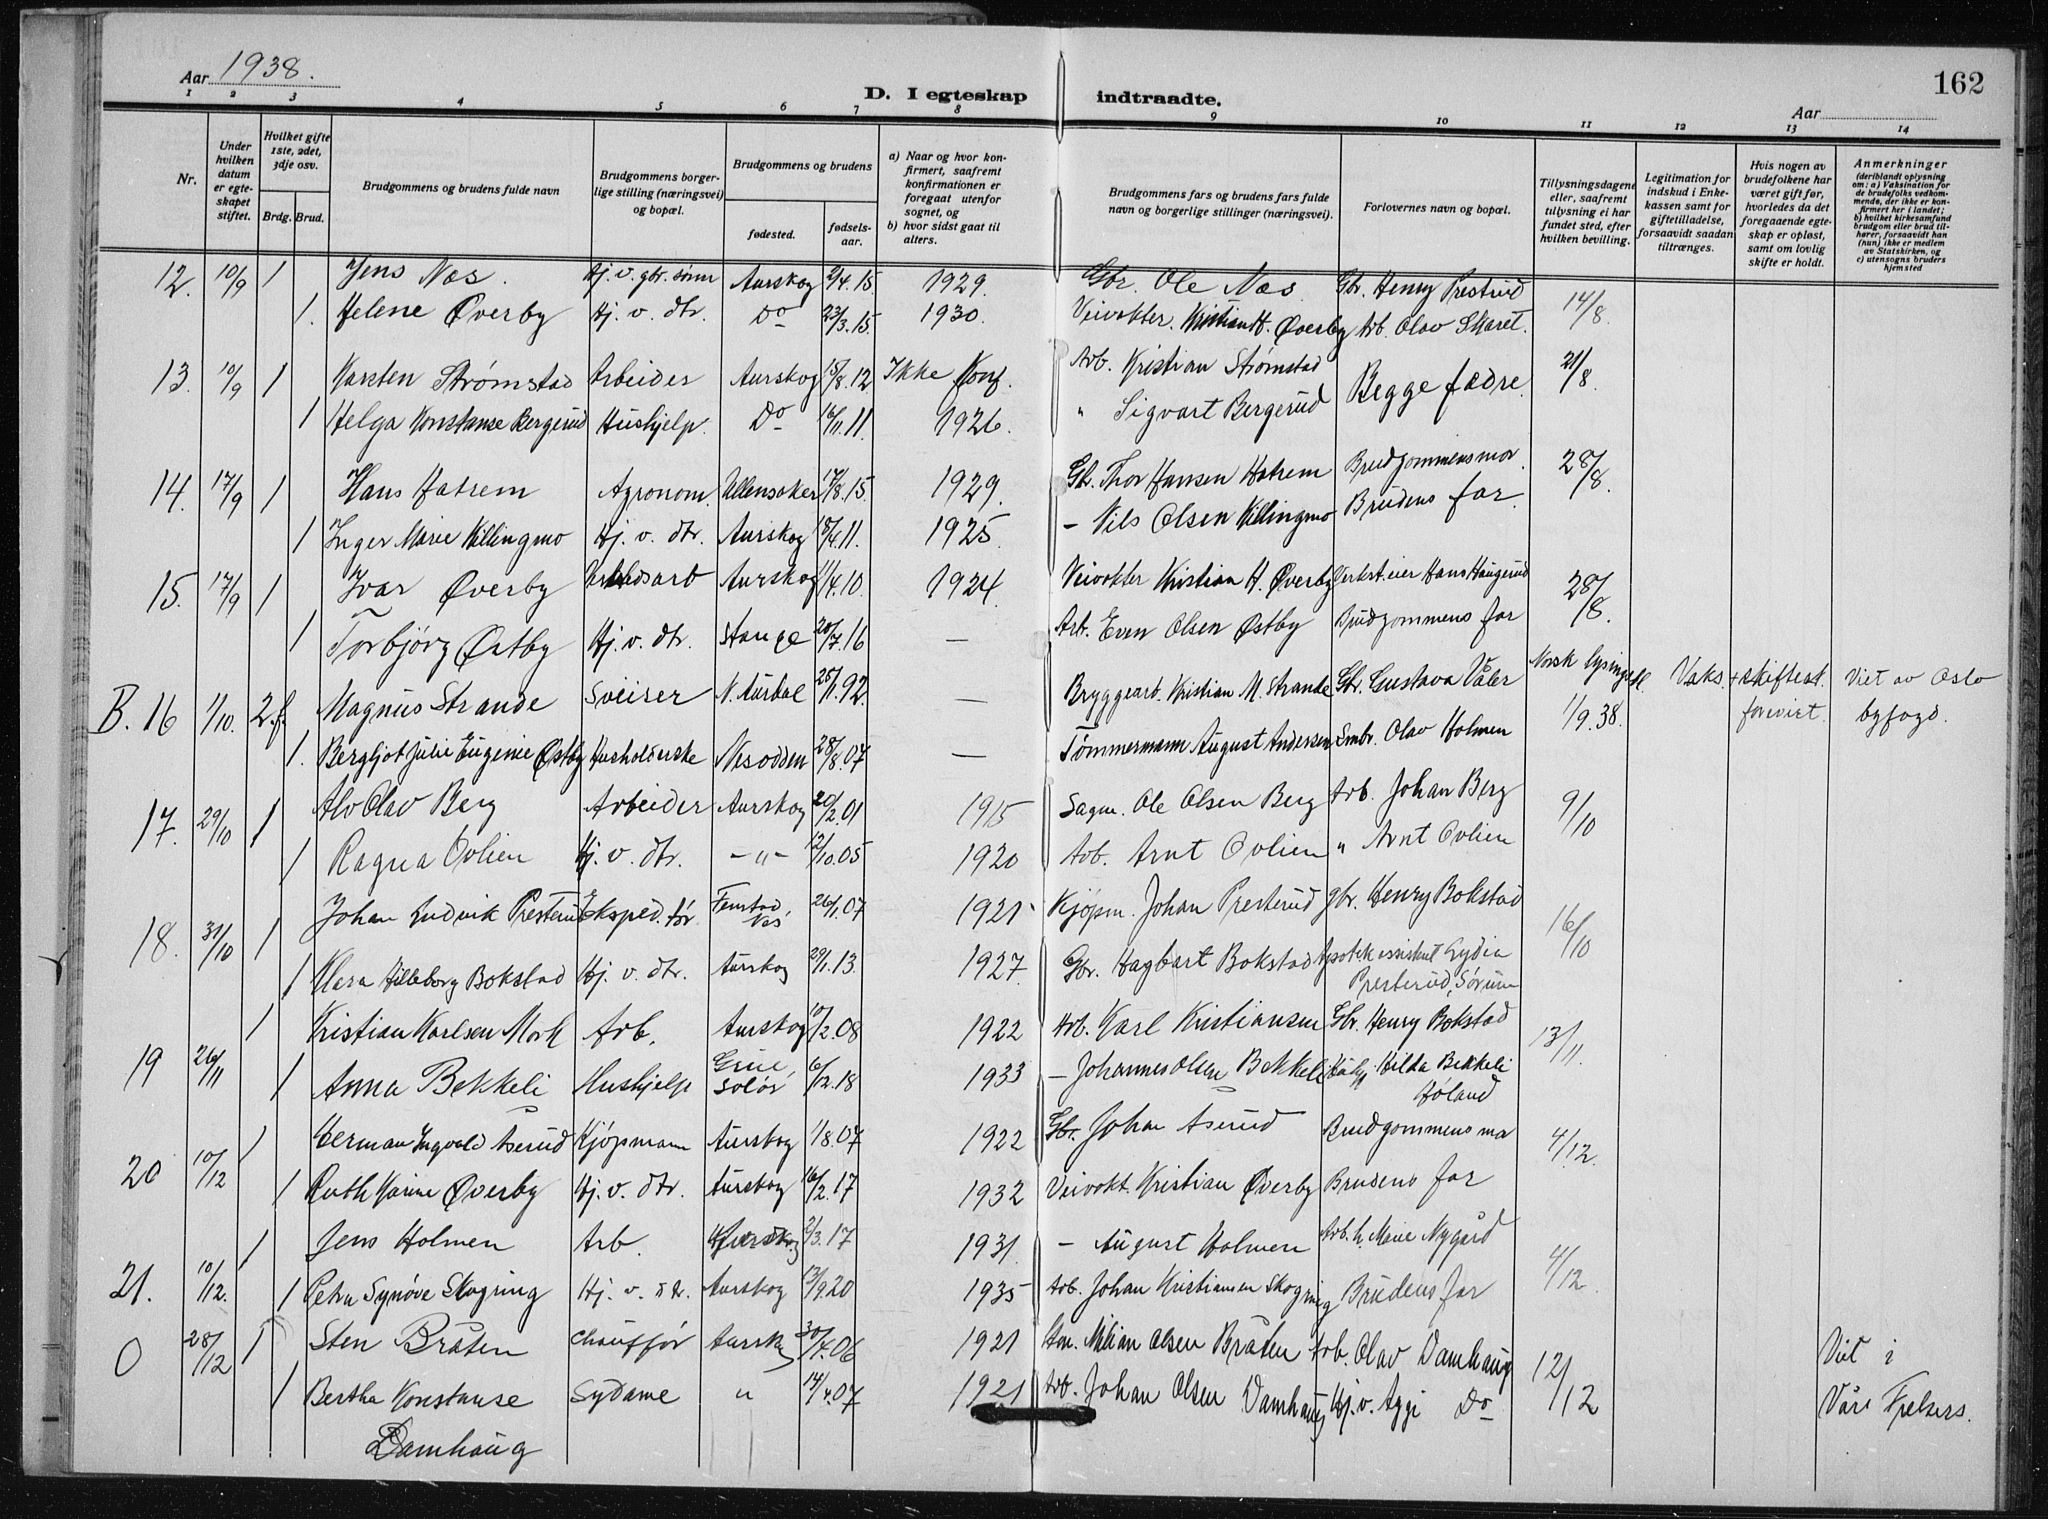 Aar 1938.
D. I egteskap indtraadte.
162
Aar
1 2 3 4 5 6 7 8 9 10 11 12 13 14
Nr.
Under hvilken datum er egteskapet stiftet.
Hvilket gifte 1ste, 2det, 3dje osv.
Brdg. Brud.
Brudgommens og brudens fulde navn
Brudgommens borgerlige stilling (næringsvei) og bopæl.
Brudgommens og brudens
fødested.
fødselsaar.
a) Naar og hvor konfirmert, saafremt konfirmationen er foregaat utenfor sognet, og
b) hvor sidst gaat til alters.
Brudgommens fars og brudens fars fulde navn og borgerlige stillinger (næringsvei).
Forlovernes navn og bopæl.
Tillysningsdagene eller, saafremt tillysning ei har fundet sted, efter hvilken bevilling.
Legitimation for indskud i Enkekassen samt for giftetilladelse, forsaavidt saadan tiltrænges.
Hvis nogen av brudefolkene har været gift før, hvorledes da det foregaaende egteskap er opløst, samt om lovlig skifte er holdt.
Anmerkninger (deriblandt oplysning om: a) Vaksination for de brudefolks vedkommende, der ikke er konfirmert her i landet; b) hvilket kirkesamfund brudgom eller brud tilhører, forsaavidt han (hun) ikke er medlem av Statskirken, og c) utensogns bruders hjemsted
12. 10/9 1 Jens Næs. Hj. v. gbr. sønn Aurskog 2/4.15. 1929. Gbr. Ole Næs. Gbr. Henry Prestrud 14/8.
1. Helene Øverby Hj. v. dtr. Do 23/3.15. 1930. Veivokter. Kristian H. Øverby Arb. Olav Skaret.
13. 10/9 1 Karsten Strømstad Arbeider Aurskog 15/8.12 Ikke Konf. Arb. Kristian Strømstad Begge fædre. 21/8.
1 Helga Konstanse Bergerud Hushjelp. Do 16/11.11. 1926. " Sigvart Bergerud
14. 17/9 1 Hans Hatrem Agronom. Ullensaker 17/8.15. 1929. Gbr. Thor Hansen Hatrem Brudgommens mor. 28/8.
1 Inger Marie Killingmo Hj. v. dtr. Aurskog 18/4.11. 1925. - Nils Olsen Killingmo Brudens far.
15. 17/9 1 Ivar Øverby Aurskog 11/4.10. 1924. Veivokter Kristian H. Øverby Verkst.eier Hans Haugerud 28/8.
1 Torbjørg Østby Hj. v. dtr. Stange 20/7.16 — Arb. Even Olsen Østby Brudgommens far
B. 16 1/10. 2.f. Magnus Strande Sveiser N. Aurdal 25/1.92. — Bryggearb. Kristian M. Strande Gbr. Gustava Våler Norsk lysingsbl. 1/9.38. Vaks. + skiftest. forevist. Viet av Oslo byfogd.
1. Bergljot Julie Eugenie Østby Husholderske Nesodden 28/8.07 — Tømmermann August Andersen Smbr. Olav Holmen
17. 29/10 1 Alv Olav Berg Arbeider Aurskog 20/2.01 1915 Sagm. Ole Olsen Berg Arb. Johan Berg 9/10
1 Ragna Ovlien Hj. v. dtr. -"- 12/10.05 1920 Arb. Arnt Ovlien " Arnt Ovlien
18. 31/10 1 Johan Ludvik Presterud Eksped.tør. Fenstad, Nes 26/1.07 1921 Kjøpm. Johan Presterud gbr. Henry Bokstad 16/10
1 Klara Hilleborg Bokstad Hj. v. dtr. Aurskog 29/1.13. 1927. Gbr. Hagbart Bokstad Apotekassistent Lydia Presterud, Sørum
19 26/11 1 Kristian Karlsen Mork Arb. Aurskog 10/2.08 1922 Arb. Karl Kristiansen Gbr. Henry Bokstad 13/11.
1 Anna Bekkeli Hushjelp Grue, Solør 6/12.18 1933 - Johannes Olsen Bekkeli Hilda Bekkeli Høland
20 10/12 1 Herman Ingvald Aserud Kjøpmann Aurskog 1/8.07 1922 Gbr. Johan Aserud Brudgommens mor 4/12.
1 Ruth Karine Øverby Hj. v. dtr. Aurskog 16/2.17 1932 Veivokt. Kristian Øverby Brudens far
21. 10/12. 1 Jens Holmen Arb. 2/3.17 1931. - August Holmen Arb.h. Marie Nygård 4/12.
1 Petra Synøve Skogring Hj. v. dtr. Aurskog 13/9.20 1935 Arb. Johan Kristiansen Skogring Brudens far
0 28/12 1 Sten Bråten Chauffør Aurskog 30/4.06 1921 Milian Olsen Bråten Arb. Olav Damhaug 12/12 Viet i
1 Bertha Konstanse Sydame " 14/4.07 1921 Arb. Johan Olsen Damhaug Hj.v. Aggi Do Vår Frelsers.
Damhaug